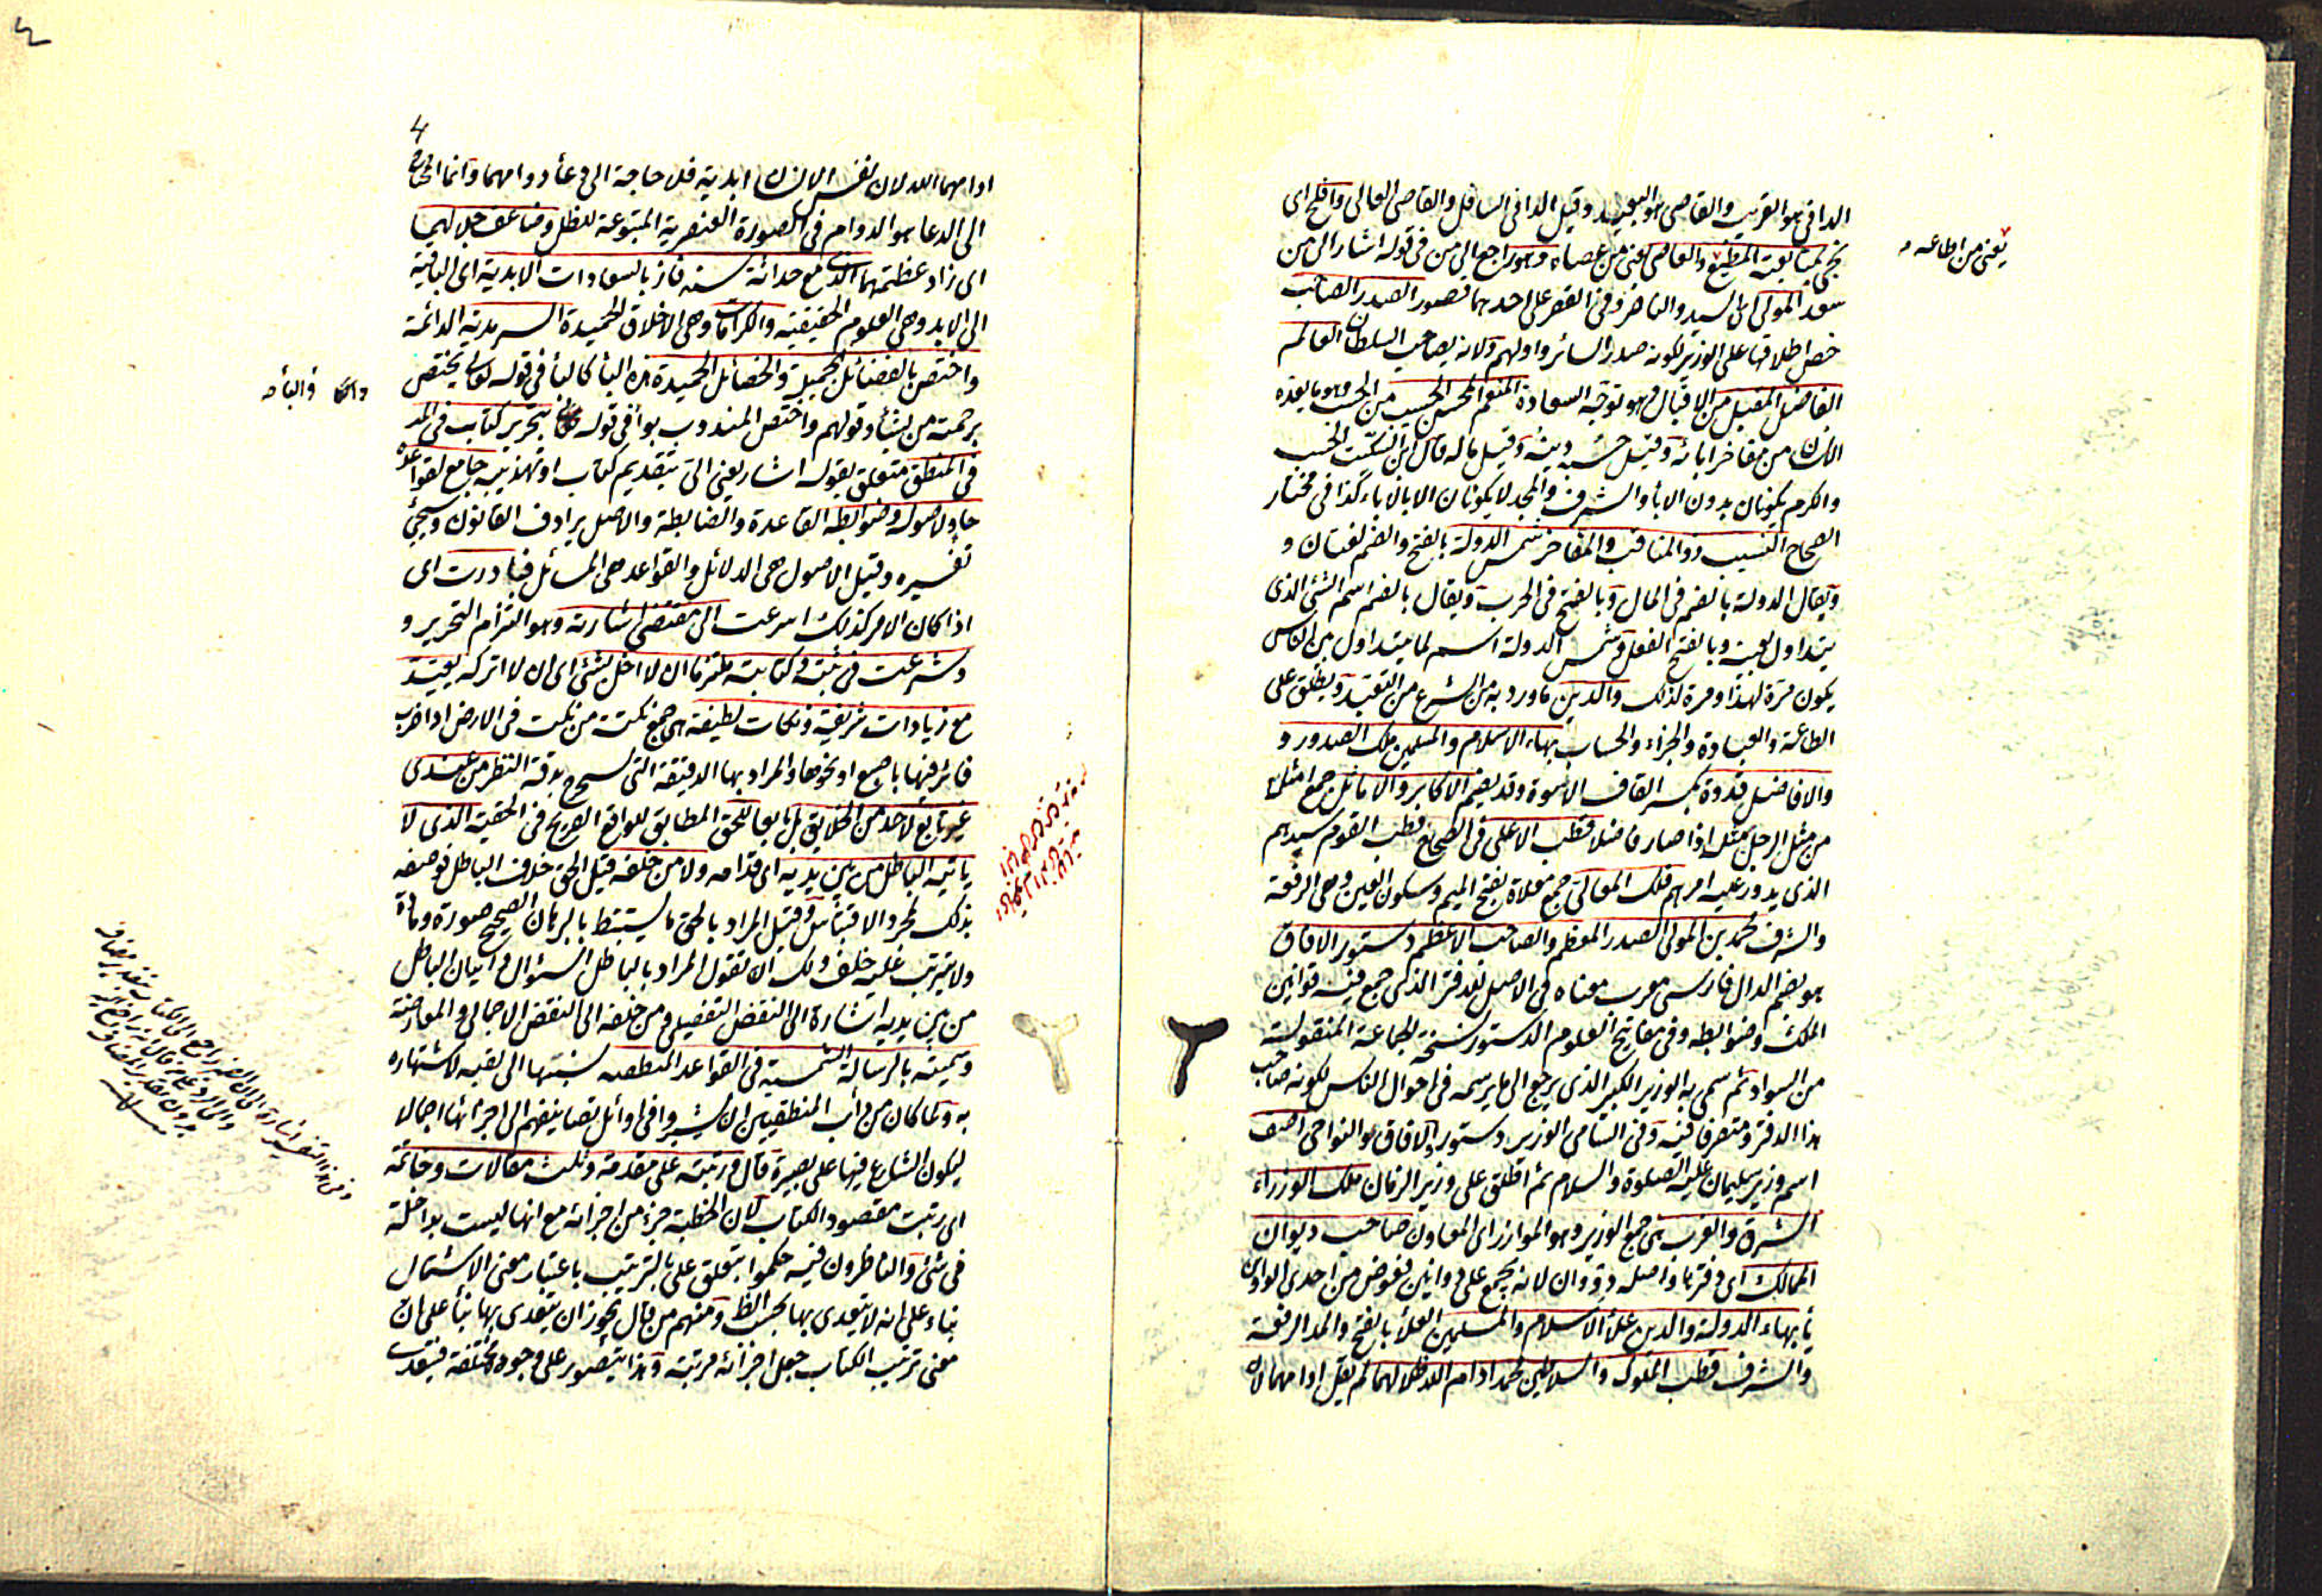 الدانی هو القریب والقاصی هو البعید وقیل الدانی السافل والقاصی العالی وافلح ای
نجی بمتابعته المطیع والعاصی یعنی من عصاه وهو راجع الی من فی قوله اشار الی من
سعد المولی ای السید والناصر وفی القصر علی احدهما قصور الصدر الصاحب
خص اطلاقها علی الوزیر لکونه صدر السائر واولهم ولانه یصاحب السلطان العالم
الفاضل المقبل من الاقبال وهو توجه السعادة المنعم المحسن الحسیب من الحسب وهو ما یعده
الانسان من مفاخر ابائه وقیل حسبه دینه وقیل ماله قال ابن السکیت الحسب
والکرم یکونان بدون الابأ والشرف والمجد لا یکونان الا بالاباء کذا فی مختار
الصحاح النسیب ذو المناقب والمفاخر شمس الدولة بالفتح والضم لغتان و
ویقال الدولة بالضم فی المال وبالفتح فی الحرب ویقال بالضم اسم الشئ الذی
یتداول بعینه وبالفتح الفعل وشمس الدولة اسم لما یتداول بین الناس
یکون مرة لهذا ومرة لذلک والدین ما ورد به من الشرع من التعبد ویطلق علی
الطاعة والعبادة والجزاء والحساب بهاء الاسلام والمسلمین ملک الصدور و
والافاضل قدوة بکسر القاف الاسوة وقد یضم الاکابر والاماثل جمع امثل
من مثل الرجل مثله اذا صار فاضلا قطب الاعلی فی الصحاح قطب القوم سیدهم
الذی یدور علیه امرهم فلک المعالی جمع معلاة بفتح المیم وسکون العین وهی الرفعة
والشرف محمد بن المولی الصدر المعظم والصاحب الاعظم دستور الافاق
هو بضم الدال فارسی معرب معناه فی الاصل للدفتر الذی جمع فیه قوانین
الملک وضوابطه وفی مفاتیح العلوم الدستور نسخة الجماعة المنقولة
من السواد ثم سمی به الوزیر الکبیر الذی یرجع الی ما یرسمه فی احوال الناس لکونه صاحب
هذا الدفتر ومتصرفا فیه وفی السامی الوزیر دستور والافاق هو النواحی اصف
اسم وزیر سلیمان علیه الصلوة والسلام ثم اطلق علی وزیر الزمان ملک الوزراء
الشرق والغرب هی جمع الوزیر وهو الموازر ای المعاون صاحب دیوان
الممالک ای دفترها واصله دووان لانه یجمع علی دواوین فعوض من احدی الواوین
یأ بهاء الدولة والدین علأ الاسلام والمسلمین العلأ بالفتح والمد الرفعة
والشرف قطب الملوک والسلاطین محمد ادام الله ظلالهما لم یقل ادامهما لان
یعنی من اطاعه
4
ادامهما الله لان نفس الانسان ابدیة فلا حاجة الی دعأ دوامهما وانما المحتاج
الی الدعا هو الدوام فی الصورة العنصریة المتبوعة للظل وضاعف جلالهما
ای زاد عظمتهما الذی مع حداثة سنه فاز بالسعادات الابدیة ای الباقیة
الی الابد وهی العلوم الحقیقیة والکرامات وهی الاخلاق الحمیدة السرمدیة الدائمة
واختص بالفضائل الجمیلة والخصائل الحمیدة هذه البأ کالبأ فی قوله تعالی یختص
برحمته من یشأ وقولهم واختص المندوب بوأ فی قوله بتحریر کتاب فی المد
فی المنطق متعلق بقوله اشار یعنی الی بتقدیم کتاب او تهذیبه جامع لقواعده
حاو لاصوله وضوابطه القاعدة والضابطة والاصل یرادف القانون وسیجئ
تفسیره وقیل الاصول هی الدلائل والقواعد هی المسائل فبادرت ای
اذا کان الامر کذلک اسرعت الی مقتضی اشارته وهو التزام التحریر و
وشرعت فی ثبته وکتابته ملتزما ان لا اخل بشئ ای ان لا اترکه یعتد
مع زیادات شریفة ونکات لطیفة هی جمع نکتة من نکت فی الارض اذا ضرب
فاثر فیها باصبع او نحوها والمراد بها الدقیقة التی تستخرج بدقة النظر من عندی
غیر تابع لاحد من الخلایق بل تابعا للحق المطابق للواقع الصریح فی الحقیة الذی لا
یاتیه الباطل من بین یدیه ای قدامه ولا من خلفه قیل الحق خلاف الباطل فوصفه
بذلک لمجرد الاقتباس وقیل المراد بالحق ما یستنبط بالبرهان الصحیح صورة ومادة
ولا یترتب علیه خلف ولک ان تقول المراد بالباطل السؤال واتیان الباطل
من بین یدیه اشارة الی النقض التفصیلی ومن خلفه الی النقض الاجمالی والمعارضة
وسمیته بالرسالة الشمسیة فی القواعد المنطقیه نسبتها الی لقبه لاشتهاره
به ولما کان من دأب المنطقیین ان یشیروا فی اوائل تصانیفهم الی اجزائها اجمالا
لیکون الشارع فیها علی بصیرة قال ورتبته علی مقدمة وثلث مقالات وخاتمة
ای رتبت مقصود الکتاب لان الخطبة جزء من اجزائه مع انها لیست بداخلة
فی شئ والناظرون فیه حکموا بتعلق علی بالترتیب باعتبار معنی الاشتمال
بناء علی انه لا یتعدی بها بحسب الظ ومنهم من قال یجوز ان یتعدی بها بنأ علی ان
معنی ترتیب الکتاب جعل اجزائه مرتبة وهذا یتصور علی وجوه مختلفة فیتعدی